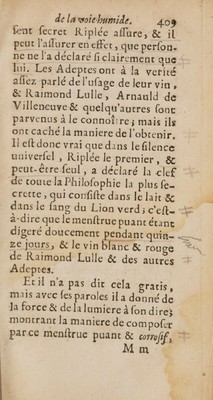 de la voie humide. 409
sent secret Riplée assure, & il
peut l'assurer en effet, que person-
ne ne l'a déclaré si clairement que
lui. Les Adeptes ont à la verité
assez parlé de l'usage de leur vin,
& Raimond Lulle, Arnauld de
Villeneuve & quelqu'autres sont
parvenus à le connoître; mais ils
ont caché la maniere de l'obtenir.
Il est donc vrai que dans le silence
universel, Riplée le premier, &
peut-être seul, a déclaré la clef
de toute la Philosophie la plus se-
crette, qui consiste dans le lait &
dans le sang du Lion verd; c'est-
à-dire que le menstrue puant étant
digeré doucement pendant quin-
ze jours, & le vin blanc & rouge
de Raimond Lulle & des autres
Adeptes.
Et il n'a pas dit cela gratis,
mais avec ses paroles il a donné de
la force & de la lumiere à son dire;
montrant la maniere de composer
par ce menstrue puant & corrosif,
M m